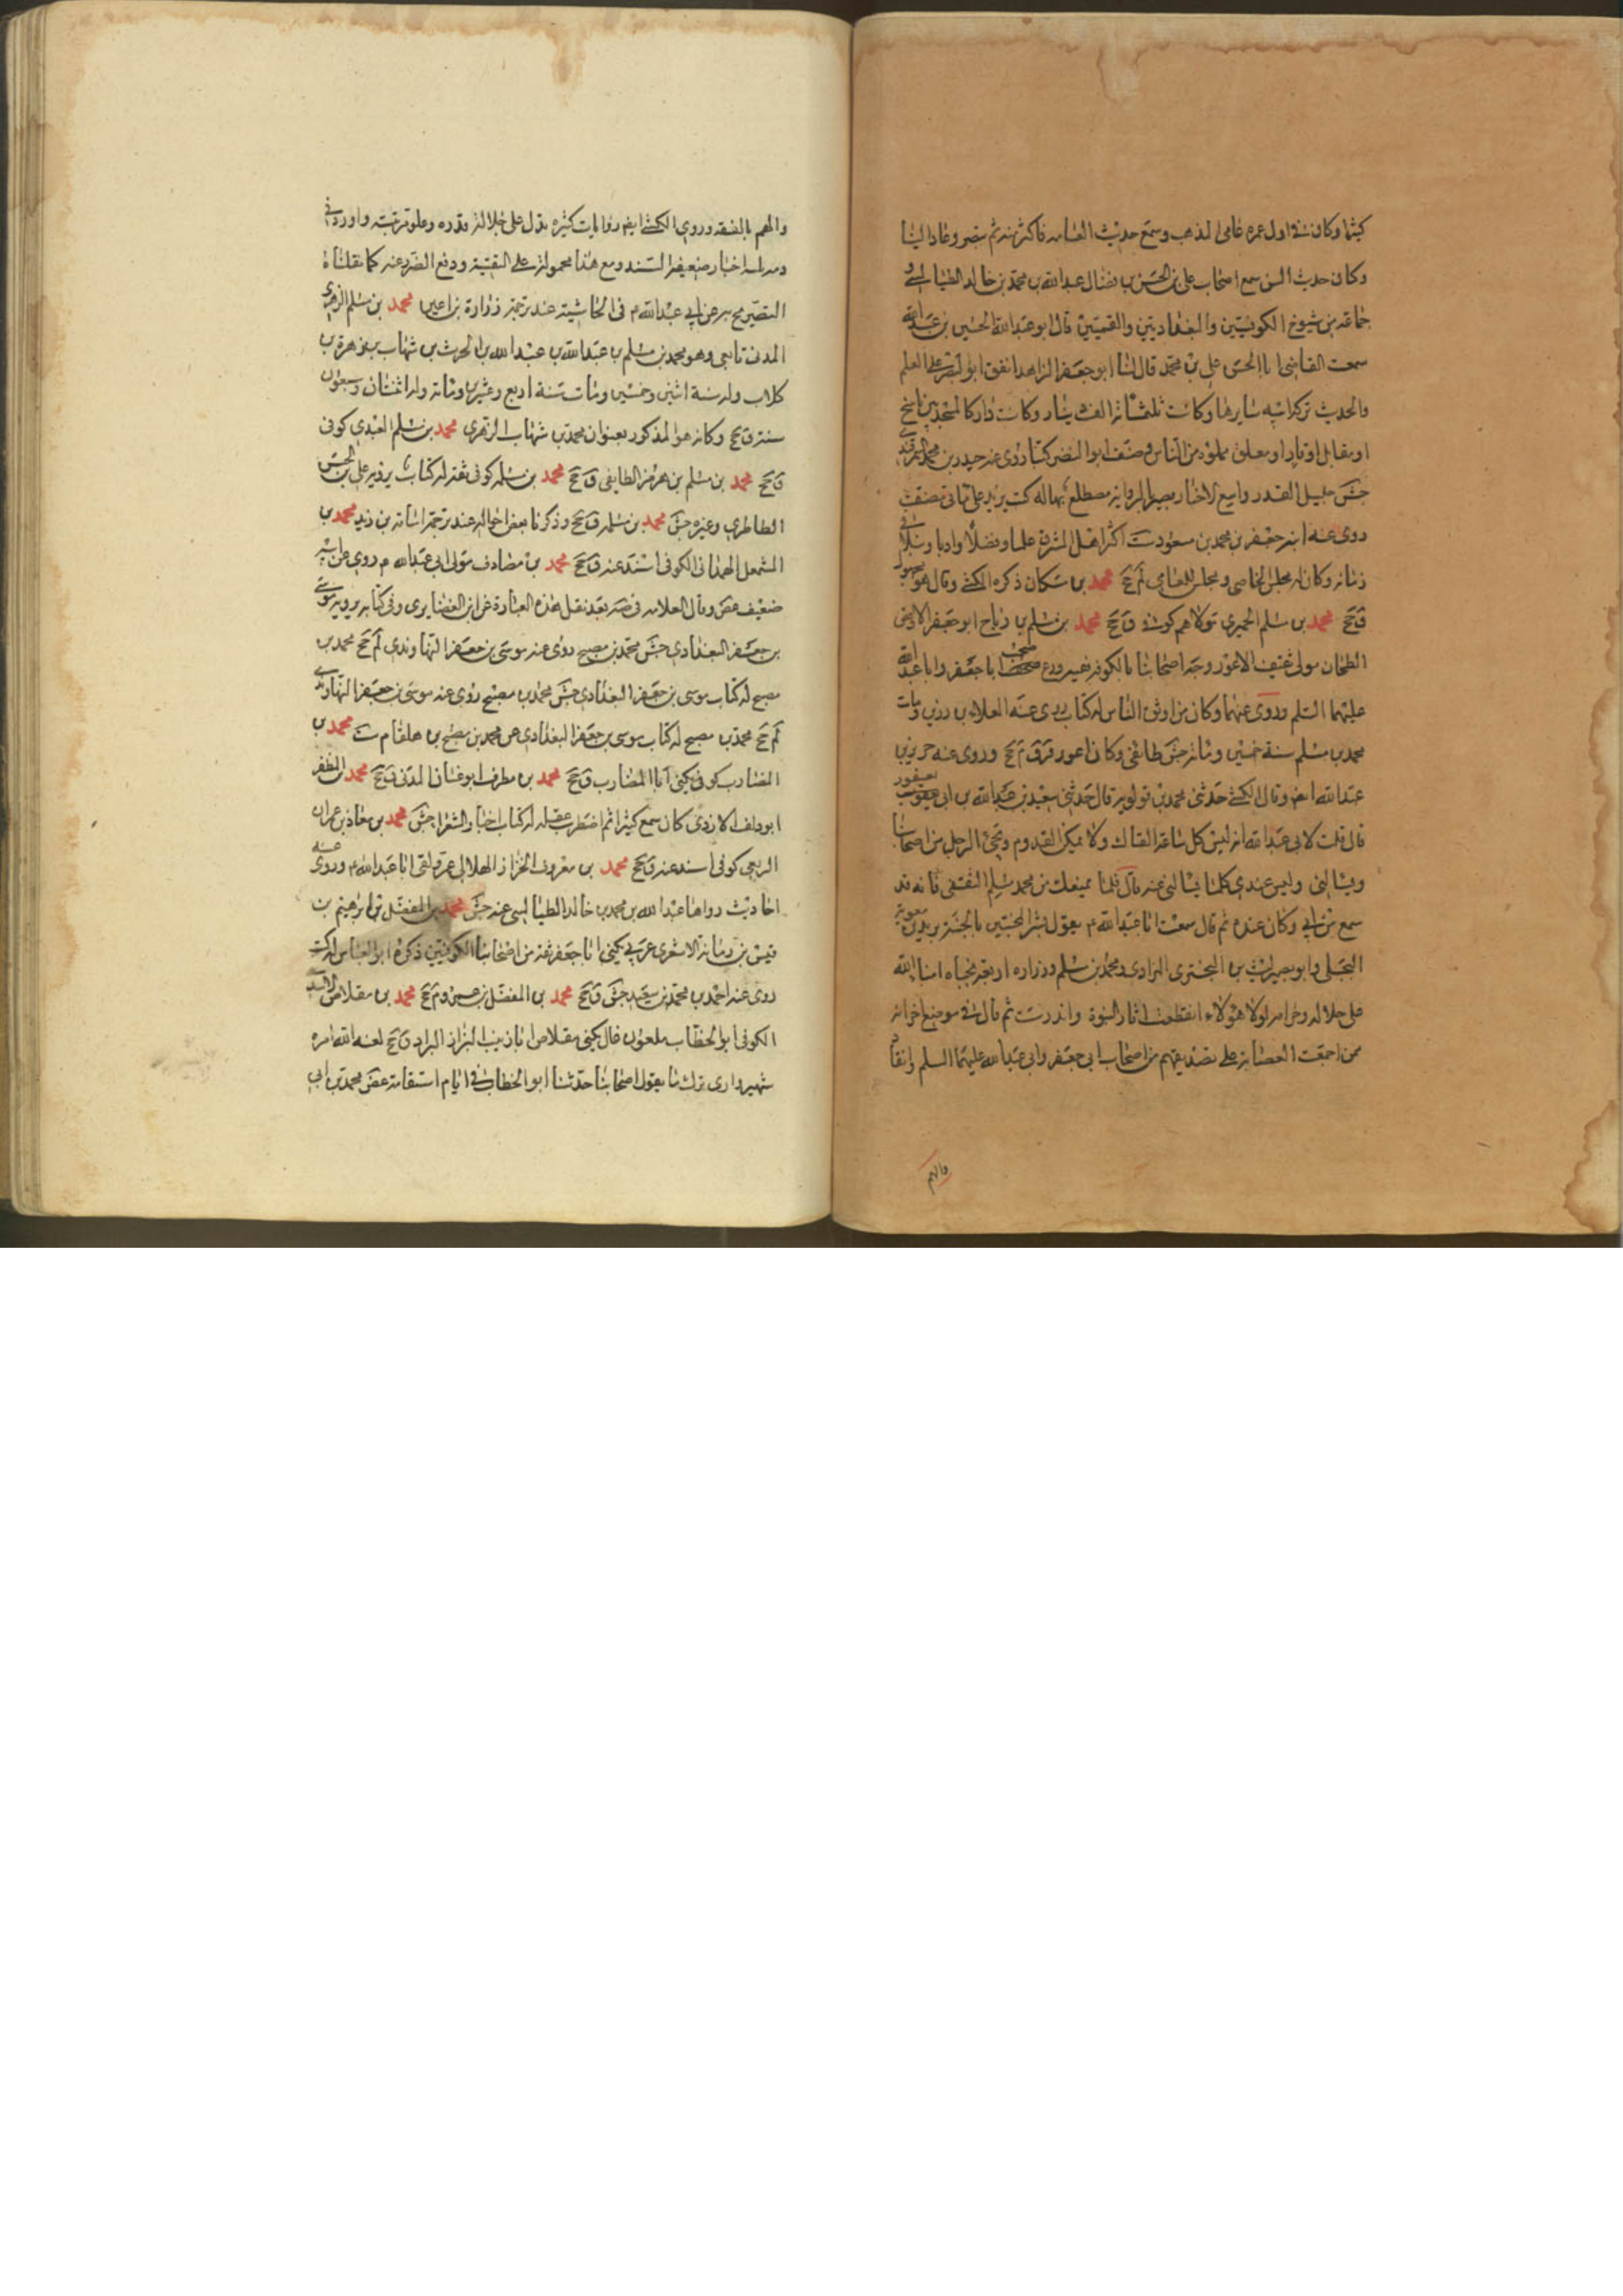 كثيرا وكان في اول عمره عامي المذهب وسمع حديث العامه فاكثر منه ثم تبصر وعاد الينا
وكان حديث السن سمع اصحاب علي بن الحسن بن فضال عبد الله بن محمد بن خالد الطيالسي و
جماعة من شيوخ الكوفيين والبغداديين والقميين قال ابو عبد الله الحسين بن عبد الله
سمعت القاضي ابا الحسن علي بن محمد قال لنا ابو جعفر الزاهد انفق ابو النضر على العلم
والحديث تركة ابيه سايرها وكانت ثلثمائة الف دينار وكانت داره كالمسجد بين ناسخ
او مقابل او قارا او معلق مملوة من الناس وصنف ابو النضر كتبا روى عنه حيدر بن محمد السمرقندي
جش جليل القدر واسع الاخبار بصير بالرواية مضطلع بها له كتب يزيد على مأتي مصنف
روى عنه ابنه جعفر بن محمد بن مسعود ست اكثر اهل المشرق علما وفضلا وادبا ونبلا في
زمانه وكان له مجلس للخاصي ومجلس للعامي لم جخ محمد بن مسكان ذكره الكشي وقال هو مجهول
ق جخ محمد بن مسلم الحميري مولاهم كوفي ق جخ محمد بن مسلم بن رباح ابو جعفر الاوقص
الطحان مولى ثقيف الاعور وجه اصحابنا بالكوفة فقيه ورع صحب ابا جعفر وابا عبد الله
عليهما السلم وروى عنهما وكان من اوثق الناس له كتاب روى عنه العلاء بن رزين ومات
محمد بن مسلم سنة خمسين ومائة جش طائفي وكان اعور قر ق م جخ وروى عنه حريز بن
عبد الله ايضا وقال الكشي حدثني محمد بن قولويه قال حدثني سعيد بن عبد الله بن ابي يعفور
قال قلت لابي عبد الله انه ليس كل ساعة القاك ولا يمكن القدوم ويجيء الرجل من اصحابنا
ويسالني وليس عندي كلما يسالني عنه قال فما يمنعك من محمد بن مسلم الثقفي فانه قد
سمع من ابي وكان عنده ثم قال سمعت ابا عبد الله م يقول بشر المخبتين بالجنة بريد بن معوية
البجلي وابو بصير ليث بن البختري المرادي ومحمد بن مسلم وزراره اربعة نجباء امناء الله
على حلاله وحرامه لولا هؤلاء انقطعت اثار النبوة واندرست ثم قال في موضع اخر انه
ممن اجمعت العصابة على تصديقهم من اصحاب ابي جعفر وابي عبد الله عليهما السلم وانقاد
والهم
والهم بالفقه وروى الكشي ايضا روايات كثيره يدل على جلالة قدره وعلو مرتبته واورد في
مذمته اخبار ضعيفة السند ومع هذا محمولة على التقية ودفع الضرر عنه كما نقلناه
التصريح به عن ابي عبد الله م في الحاشية عند ترجمة زرارة بن اعين محمد بن مسلم الزهري
المدني تابعي وهو محمد بن مسلم بن عبد الله بن عبد الله بن الحرث بن شهاب بن زهرة بن
كلاب ولد سنة اثنين وخمسين ومات سنة اربع وعشرين ومائة وله اثنتان وسبعون
سنة ق جخ وكانه هو المذكور بعنوان محمد بن شهاب الزهري محمد بن مسلم العبدي كوفي
ق جخ محمد بن مسلم بن هرمز الطايفي ق جخ محمد بن مسلمه كوفي ثقة له كتاب يرويه علي بن الحسن
الطاطري وغيره جش محمد بن مسلمه ق جخ وذكرنا بعض احواله عند ترجمة اسامة بن زيد محمد بن
المشمعل الهمداني الكوفي اسند عنه ق جخ محمد بن مصادف مولى ابي عبد الله م روى عن ابيه
ضعيف غض وقال العلامه في ضه بعد نقل هذه العبارة عن ابن الغضايري وفي كتابه يرويه موسى
بن جعفر البغدادي جش محمد بن مصبح روى عنه موسى بن جعفر النهاوندي لم جخ محمد بن
مصبح له كتاب موسى بن جعفر البغدادي جش محمد بن مصبح روى عنه موسى بن جعفر النهاوندي
لم جخ محمد بن مصبح له كتاب موسى بن جعفر البغدادي عن محمد بن مصبح بن هلقام ست محمد بن
المضارب كوفي يكنى ابا المضارب ق جخ محمد بن مطرف ابو غسان المدني ق جخ محمد بن المظفر
ابو دلف الازدي كان سمع كثيرا ثم اضطرب عقله له كتاب اخبار الشعرا جش محمد بن معاذ بن عمران
الربعي كوفي اسند عنه ق جخ محمد بن معروف الخزاز الهلالي عمر ولقى ابا عبد الله م وروى عنه
احاديث رواها عبد الله بن محمد بن خالد الطيالسي عنه جش محمد بن المفضل بن ابراهيم بن
قيس بن رمانة الاشعري عربي يكنى ابا جعفر ثقة من اصحابنا الكوفيين ذكره ابو العباس له كتب
روى عنه احمد بن محمد بن سعيد جش ق جخ محمد بن المفضل بن م جخ محمد بن مقلاص الاسدي
الكوفي ابو الخطاب ملعون قال يكنى مقلاص ابا زينب البزاز البراد ق جخ لعنه الله امره
شهير وارى ترك ما يقول اصحابنا حدثنا ابو الخطاب في ايام استقامته غض محمد بن ابي